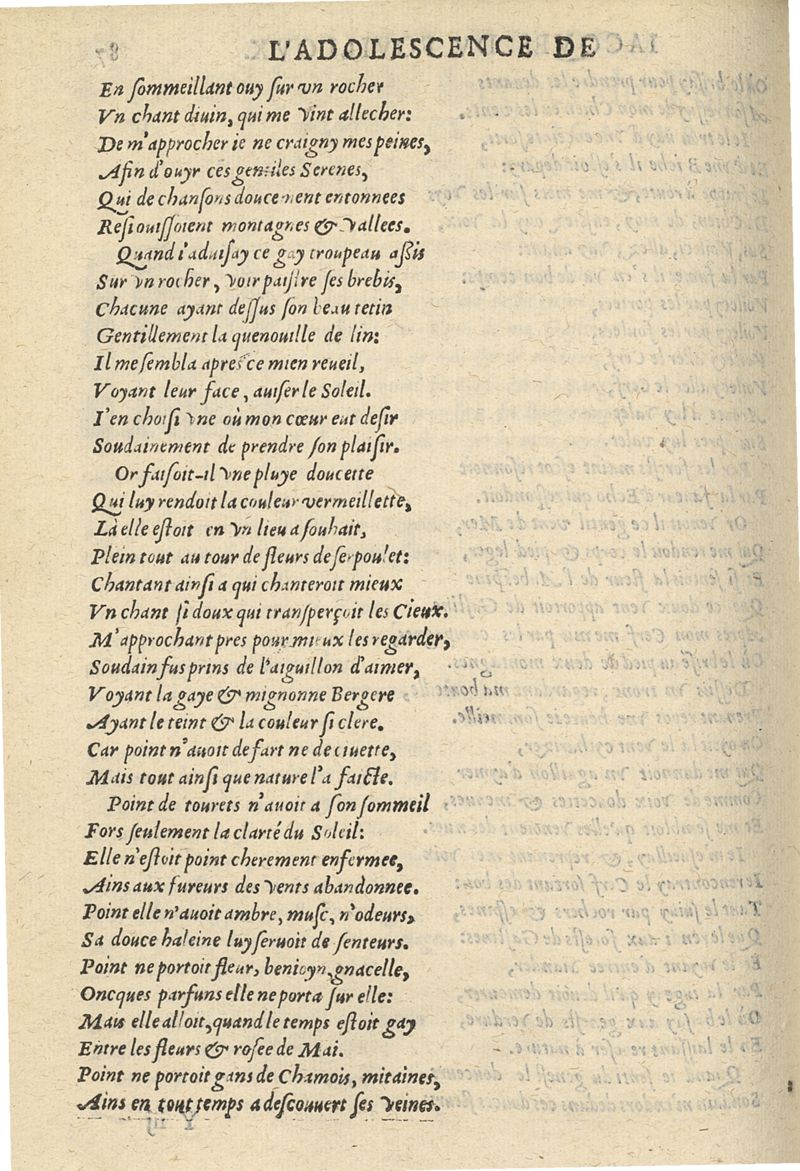 L'ADOLESCENCE DE
En sommeillant ouy sur vn rocher
Vn chant diuin, qui me vint allecher:
De m'approcher ie ne craigny mes peines,
Afin d'ouyr ces gentiles Serenes,
Qui de chansons doucement entonnees
Resiouissoient montagnes & vallees.
Quand i'aduisay ce gay troupeau assis
Sur vn rocher, voir paistre ses brebis,
Chacune ayant dessus son beau tetin
Gentillement la quenouille de lin:
Il me sembla apres ce mien reueil,
Voyant leur face, auiser le Soleil.
I'en choisi vne où mon cœur eut desir
Soudainement de prendre son plaisir.
Or faisoit-il vne pluye doucette
Qui luy rendoit la couleur vermeillette,
Là elle estoit en vn lieu a souhait,
Plein tout au tour de fleurs de serpoulet:
Chantant ainsi a qui chanteroit mieux
Vn chant si doux qui transperçoit les Cieux.
M'approchant pres pour mieux les regarder,
Soudain fus prins de l'aiguillon d'aimer,
Voyant la gaye & mignonne Bergere
Ayant le teint & la couleur si clere.
Car point n'auoit de fart ne de ciuette,
Mais tout ainsi que nature l'a faicte.
Point de tourets n'auoit a son sommeil
Fors seulement la clarté du Soleil:
Elle n'estoit point cherement enfermee,
Ains aux fureurs des vents abandonnee.
Point elle n'auoit ambre, musc, n'odeurs,
Sa douce haleine luy seruoit de senteurs.
Point ne portoit fleur, benioyn, gnacelle,
Oncques parfuns elle ne porta sur elle:
Mais elle alloit, quand le temps estoit gay
Entre les fleurs & rosee de Mai.
Point ne portoit gans de Chamois, mitaines,
Ains en tout temps a descouuert ses veines.